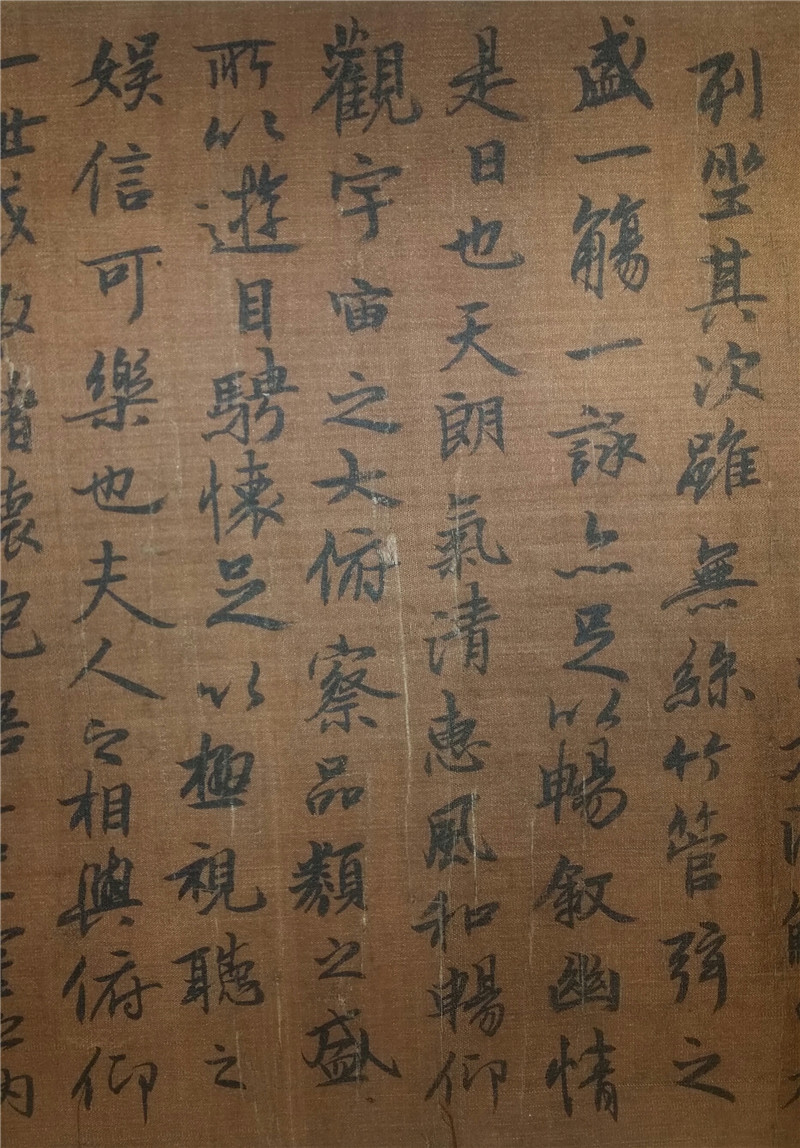 列坐其次雖無絲竹管弦之
盛一觴一詠亦足以暢叙幽情
是日也天朗氣清惠風和暢仰
觀宇宙之大俯察品類之盛
所以遊目騁懷足以極視聽之
娛信可樂也夫人之相與俯仰
一世或取諸懷抱悟言一室之内